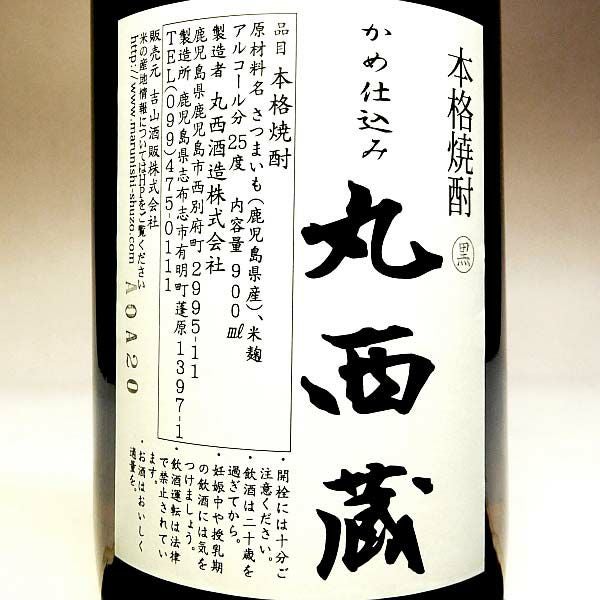 本格焼酎
黒
かめ仕込み
丸西蔵
品目 本格焼酎
原材料名 さつまいも(鹿児島県産)、米麹
アルコール分 25度 内容量 900㎖
製造者 丸西酒造株式会社
鹿児島県鹿児島市西別府町2995-11
製造所 鹿児島県志布志市有明町蓬原1397-1
TEL(099)475-0111
販売元 吉山酒販株式会社
米の産地情報についてはHPをご覧ください
http://www.marunishi-shuzo.com
・開栓には十分ご
注意ください。
・飲酒は二十歳を
過ぎてから。
・妊娠中や授乳期
の飲酒には気を
つけましょう。
・飲酒運転は法律
で禁止されてい
ます。
・お酒はおいしく
適量を。
A0A20